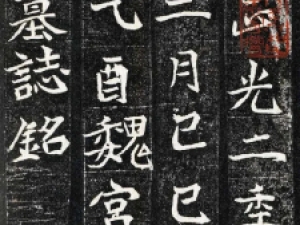 光二年
二月己巳
乙酉魏宮
墓誌銘